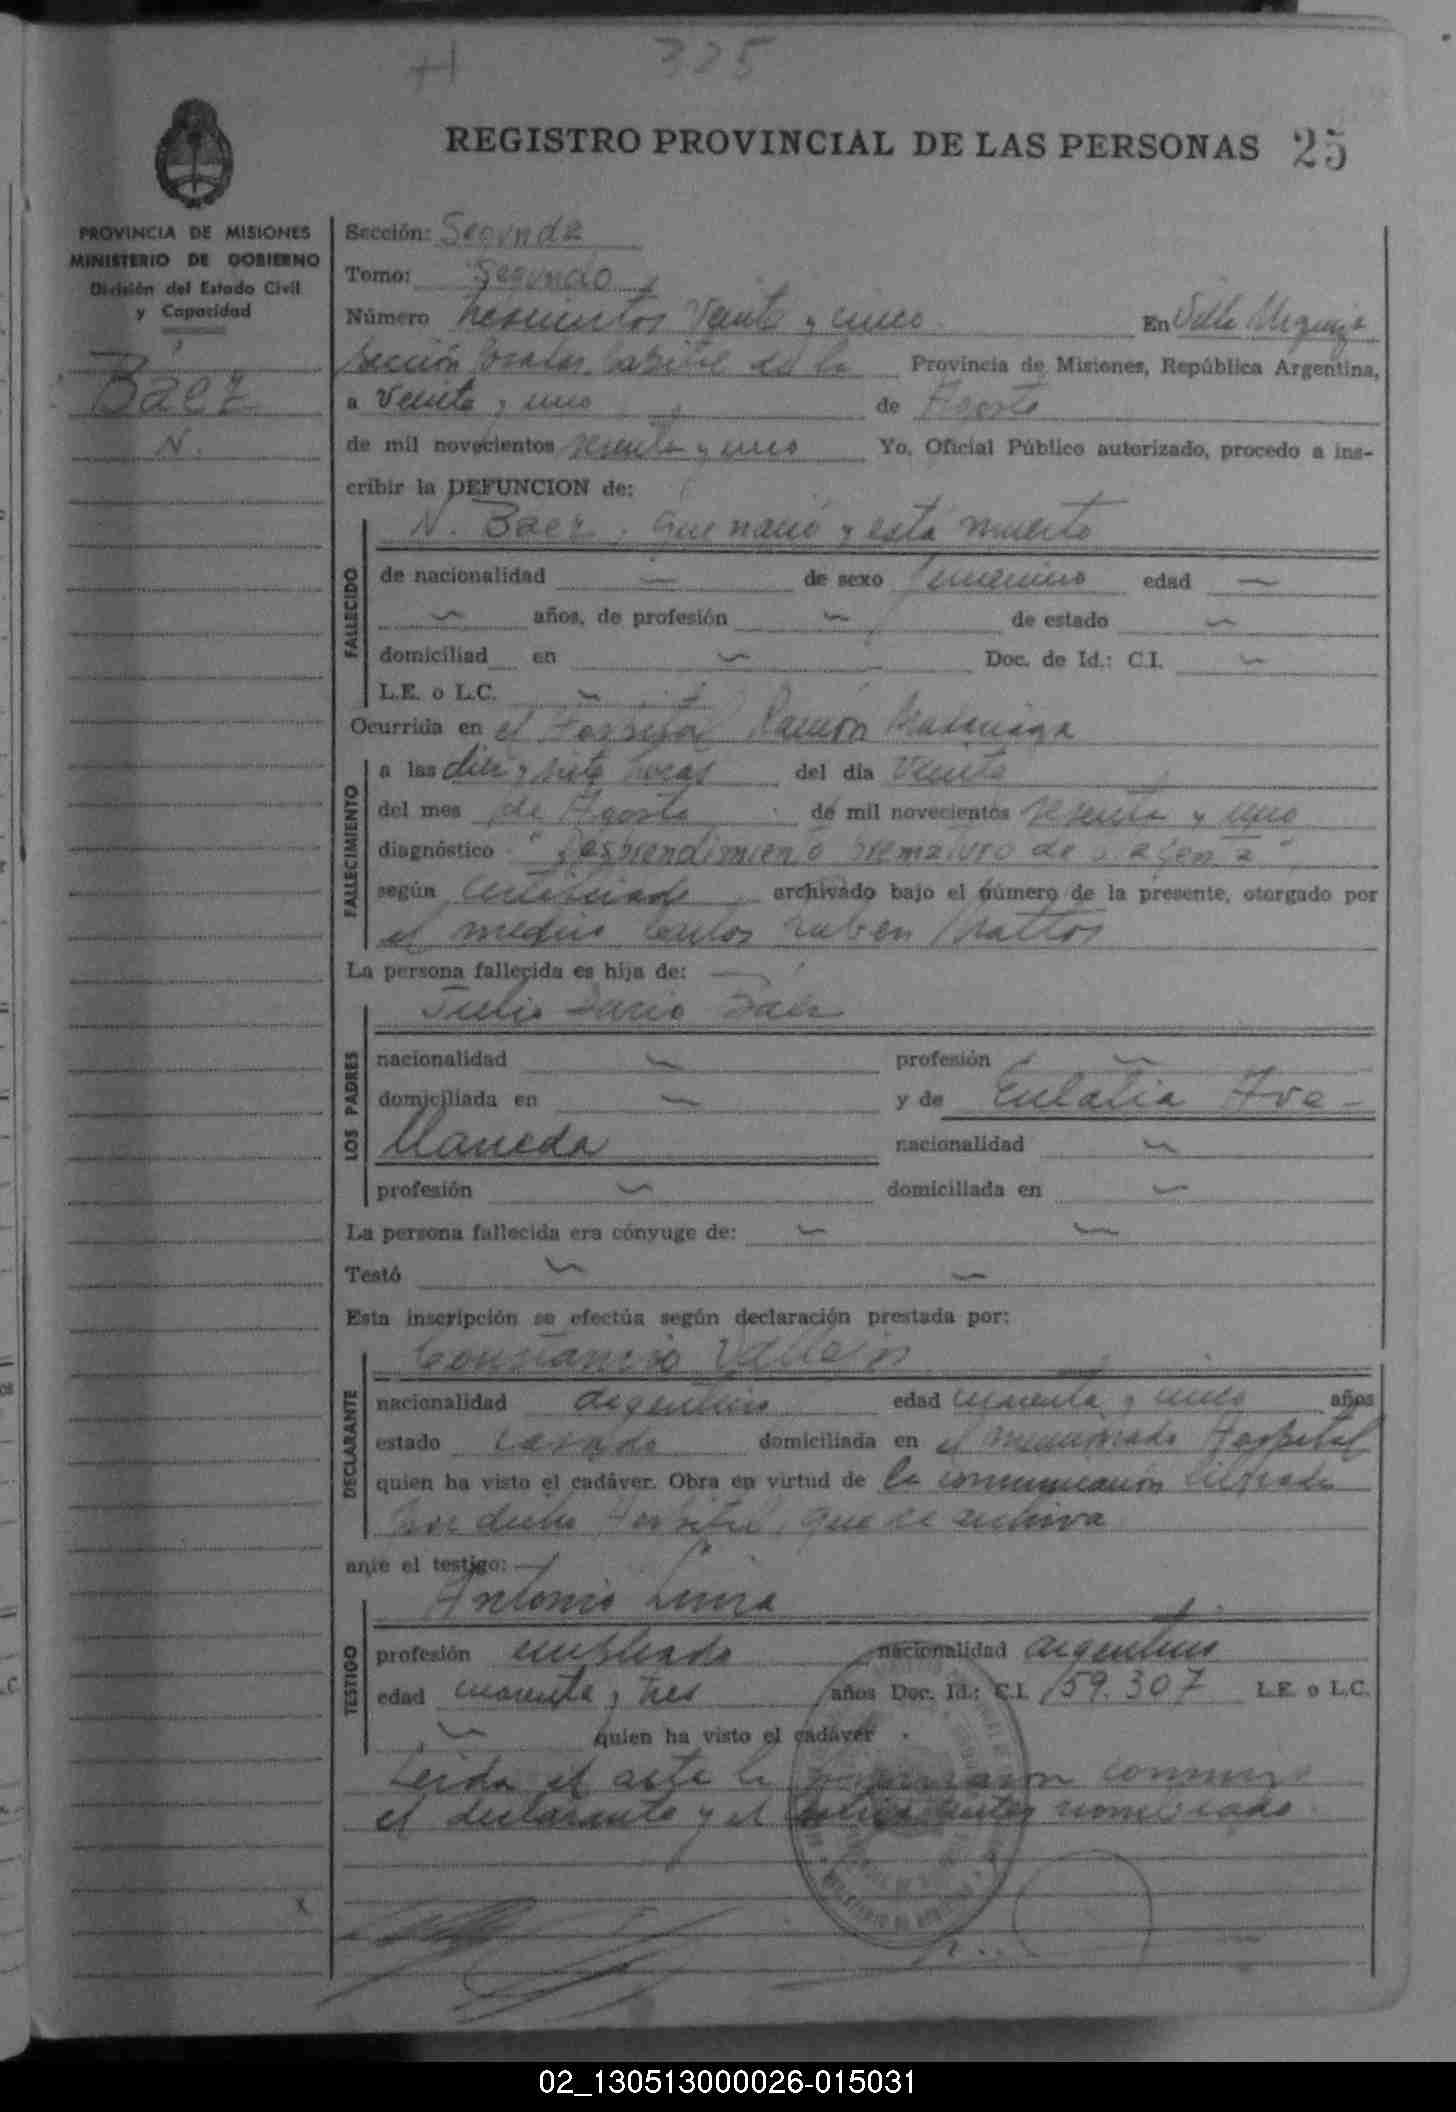 H 325
REGISTRO PROVINCIAL DE LAS PERSONAS 25
PROVINCIA DE MISIONES
MINISTERIO DE GOBIERNO
División del Estado Civil
y Capacidad
Baez
N.
Sección: Segunda
Tomo: Segundo
Número trescientos veinte y cinco En Villa Urquiza
Sección Posadas Capital de la Provincia de Misiones, República Argentina,
a veinte y uno de Agosto
de mil novecientos sesenta y uno Yo, Oficial Público autorizado, procedo a ins-
cribir la DEFUNCION de:
N. Baez, que nació y está muerto
FALLECIDO
de nacionalidad — de sexo femenino edad —
— años, de profesión — de estado —
domiciliad en — Doc. de Id.: C.I. —
L.E. o L.C. —
Ocurrida en el Hospital Ramón Madariaga
FALLECIMIENTO
a las diez y siete horas del día veinte
del mes de Agosto de mil novecientos sesenta y uno
diagnóstico "Desprendimiento prematuro de placenta"
según certificado archivado bajo el número de la presente, otorgado por
el medico Carlos Ruben Mattos
La persona fallecida es hija de: —
Julio Dario Baez
LOS PADRES
nacionalidad — profesión —
domiciliada en — y de Eulalia Ave-
llaneda nacionalidad —
profesión — domiciliada en —
La persona fallecida era cónyuge de: — —
Testó — —
Esta inscripción se efectúa según declaración prestada por:
Constancio Vallejos
DECLARANTE
nacionalidad argentino edad cuarenta y cinco años
estado casado domiciliada en el mencionado Hospital
quien ha visto el cadáver. Obra en virtud de la comunicación librada
por dicho Hospital, que se archiva
ante el testigo: —
Antonio
TESTIGO
profesión empleado nacionalidad argentino
edad cuarenta y tres años Doc. Id.: C.I. 159.307 L.E. o L.C.
— quien ha visto el cadáver.
Leida el acta la firmaron conmigo
el declarante y el testigo antes nombrado.
02_130513000026-015031